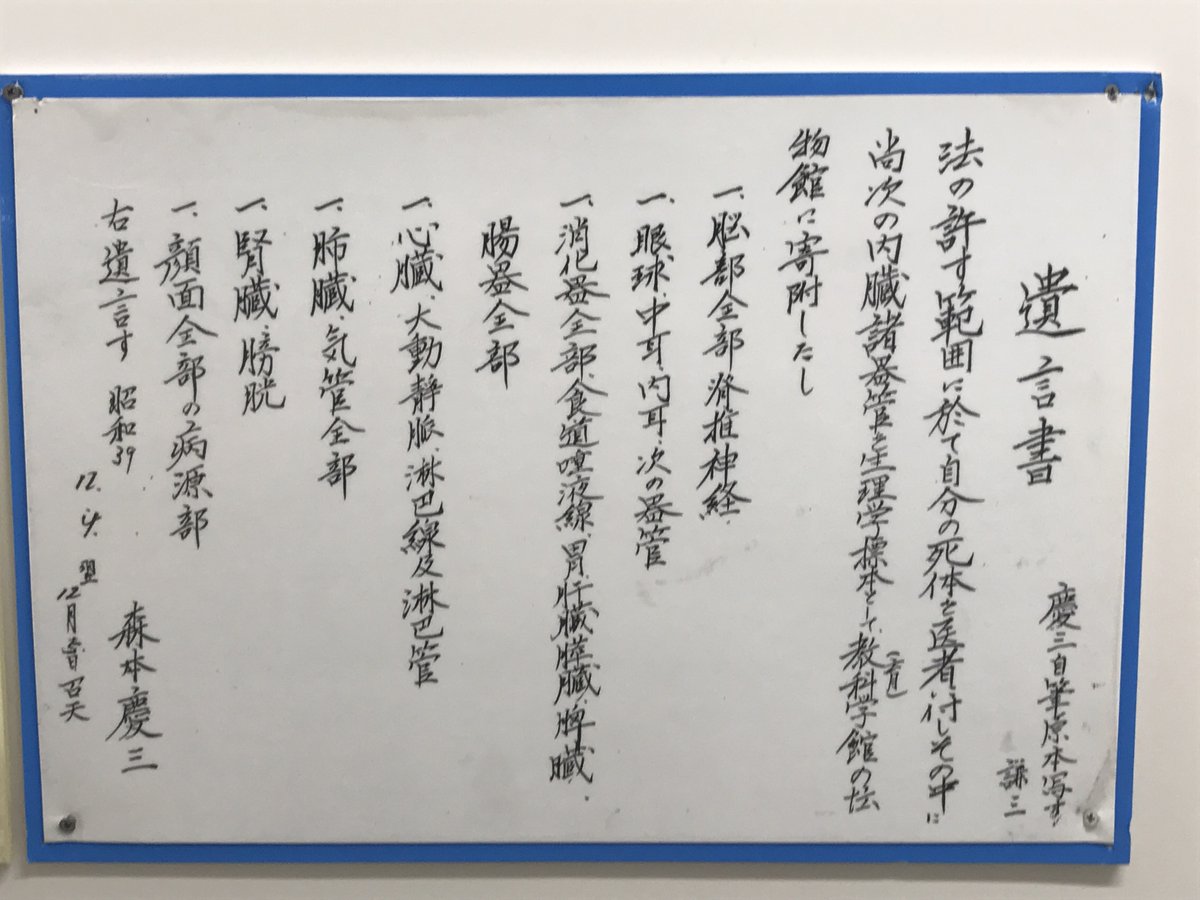 遺言書
慶三自筆原本写す
謙三
法の許す範囲に於て自分の死体を医者に付しその中に
尚次の内臓諸器管を生理学標本として教科学館の
物館に寄附したし
一、脳部全部脊推神経、
一、眼球、中耳、内耳、次の器管
一、消化器全部、食道唾液線、胃、肝臓、膵臓、脾臓、
腸器全部
一、心臓、大動静脈、淋巴線及淋巴管
一、肺臓、気管全部
一、腎臓、膀胱
一、顔面全部の病源部
右遺言す 昭和39
12. 翌12月 召天
森本慶三